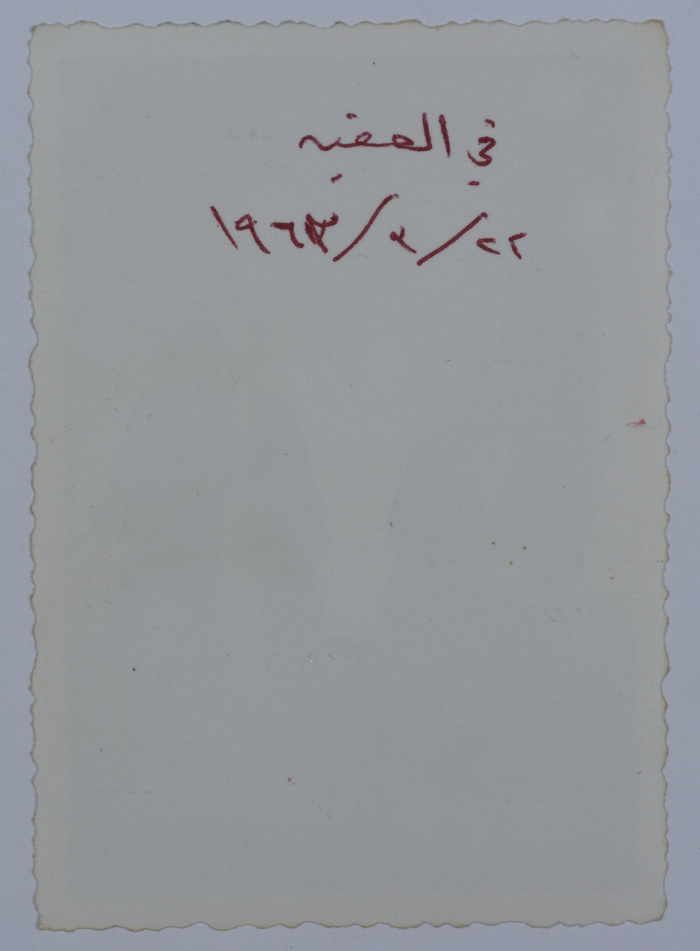 في العقبه
٢٢/٢/١٩٦٣